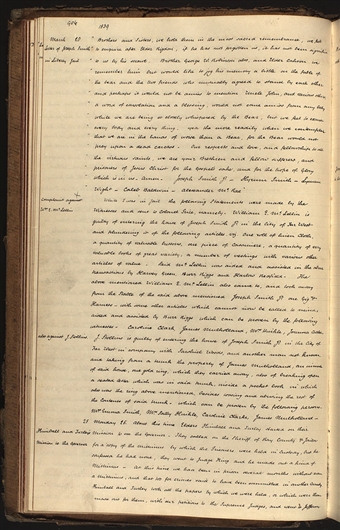 404 1839
March 25 Brothers and Sisters, we hold them in the most sacred remembrance, we feel
Letter of Joseph Smith to enquire after Elder Rigdon; if he has not forgotten us, it has not been signified
in Liberty Jail to us by his scrawl. Brother George W. Robinson also, and Elder Cahoon we
remember him but would like to jog his memory a little on the fable of
the bear and the two friends who mutually agreed to stand by each other,
and perhaps it would not be amiss to mention Uncle John, and various others
a word of consolation and a blessing, would not come amiss from any body
while we are being so closely whispered by the Bear, but we feel to excuse
every body and every thing, yea the more readily when we contemplate
that we are in the hands of worse than a bear, for the Bear would not
prey upon a dead carcass. Our respects and love, and fellowship to all
the virtuous saints, we are your Brethren and fellow sufferers, and
prisoners of Jesus Christ for the gospel's sake, and for the hope of Glory
which is in us. Amen. Joseph Smith Jr. Hyrum Smith Lyman
Wight Caleb Baldwin Alexander Mc Rae
Complaint against While I was in jail the following statements were made by the
Wm E. McLellin Witness and sent to Colonel Price, namely. William E. McLellin is
guilty of entering the house of Joseph Smith Jr. in the City of Far West
and plundering it of the following articles viz. one roll of linen Cloth,
a quantity of valuable buttons, one piece of Cassimere, a quantity of very
valuable books of great variety, a number of vestings with various other
articles of value. Said McLellin was aided and assisted in the above
transactions by Harvey Green, Burr Riggs and Harlow Redfield. The
above mentioned William E. McLellin also came to, and took away
from the stable of the said above mentioned Joseph Smith Jr. one Gig &
Harness with some other articles which cannot now be called to mind,
aided and assisted by Burr Riggs which can be proven by the following
witnesses Caroline Clark, James Mulholland, Mrs Hinkle, Joanna Carter
also against J. Stollins J. Stollins is guilty of entering the house of Joseph Smith Jr. in the City of
Far West in company with Sashiel Woods and another man not known
and taking from a trunk the property of James Mulholland, an inmate
of said house, one gold ring, which they carried away, also of breaking open
a sealed letter which was in said trunk, inside a pocket book in which
also was the ring above mentioned, besides tossing and abusing the rest of
the contents of said trunk which can be proven by the following persons
Mrs Emma Smith, Mrs Sally Hinkle, Caroline Clark, James Mulholland
25 Monday 25 About this time Elders Kimball and Turley started on their
Kimball and Turley's Mission to see the Governor. They called on the Sheriff of Ray County & Jailor
Mission to the Governor for a copy of the mittimus by which the prisoners were held in custody, but he
confessed he had none, they went to Judge King and he made out a kind of
Mittimus. At this time we had been in prison several months without even
a mittimus, and that too for crimes said to have been committed in another County
Kimball and Turley took all the papers by which we were held, or which were then
made out for them, with our petition to the Supreme Judges, and went to Jefferson